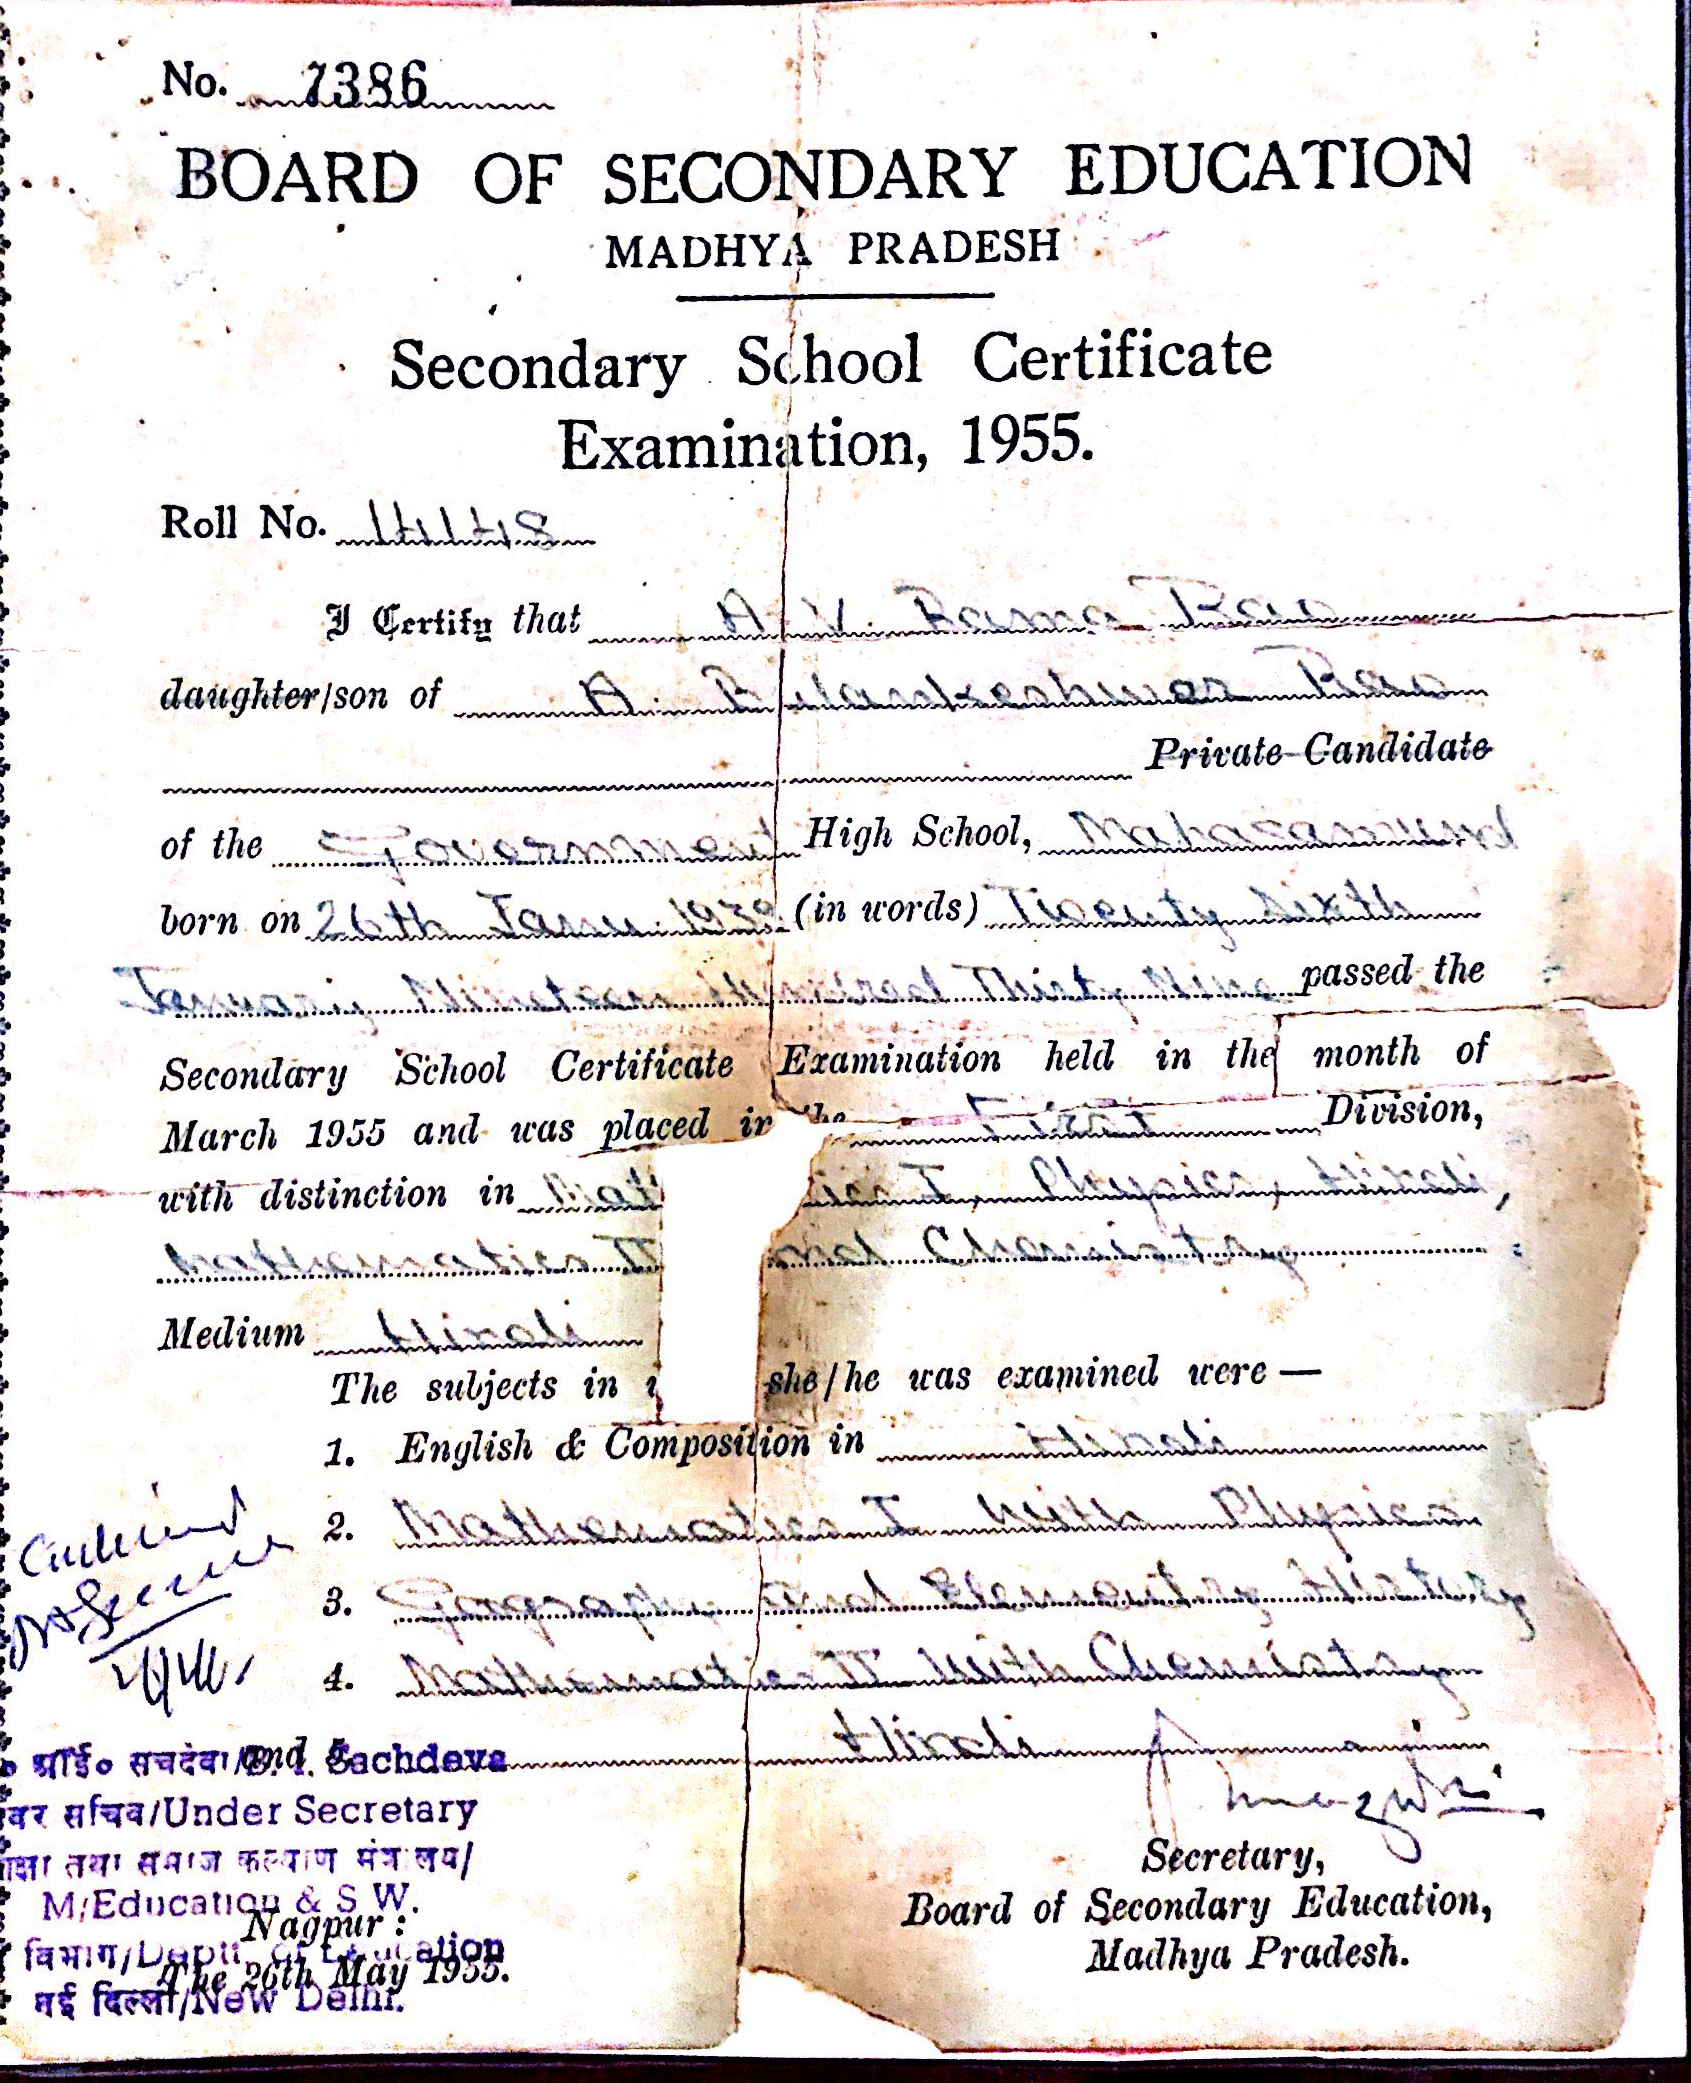 No. 7386
BOARD OF SECONDARY EDUCATION
MADHYA PRADESH
Secondary School Certificate
Examination, 1955.
Roll No. 14148
I Certify that A. V. Rama Rao
daughter/son of A. Rao
Private Candidate
of the Government High School,
born on 26th Janu. 1939 (in words) Twenty Sixth
January Nineteen Hundred Thirty Nine passed the
Secondary School Certificate Examination held in the month of
March 1955 and was placed in the First Division,
with distinction in Mat ics I, Physics, Hindi,
Mathematics II and Chemistry
Medium Hindi
The subjects in she/he was examined were —
1. English & Composition in Hindi
2. Mathematics I With Physics
3. Geography and Elementary History
4. Mathematics II With Chemistry
and 5. Hindi
Sachdeva
सचिव/Under Secretary
तथा समाज कल्याण
M/Education & S W.
Nagpur :
विभाग/Deptt. of Education
The 26th May 1955.
नई दिल्ली/New Delhi.
Secretary,
Board of Secondary Education,
Madhya Pradesh.